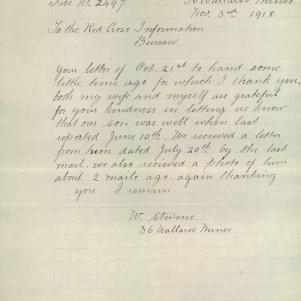 No. 2497
36 Wallaroo Mines
Nov. 3rd 1918.
To the Red Cross Information
Bureau
Your letter of Oct. 21st to hand some
little time ago for which I thank you,
both my wife and myself are grateful
for your kindness in letting us know
that our son was well when last
reported June 10th. We recieved a letter
from him dated July 20th by the last
mail. we also recieved a photo of him
about 2 mails ago. again thanking
you I remain
W. Stevens
36 Wallaroo Mines